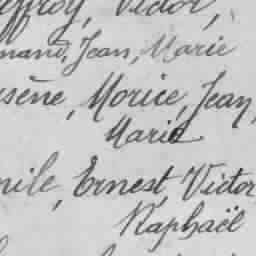 effroy, Victor,
mand, Jean, Marie
sène, Morice, Jean,
Marie
mile, Ernest, Victor
Raphaël